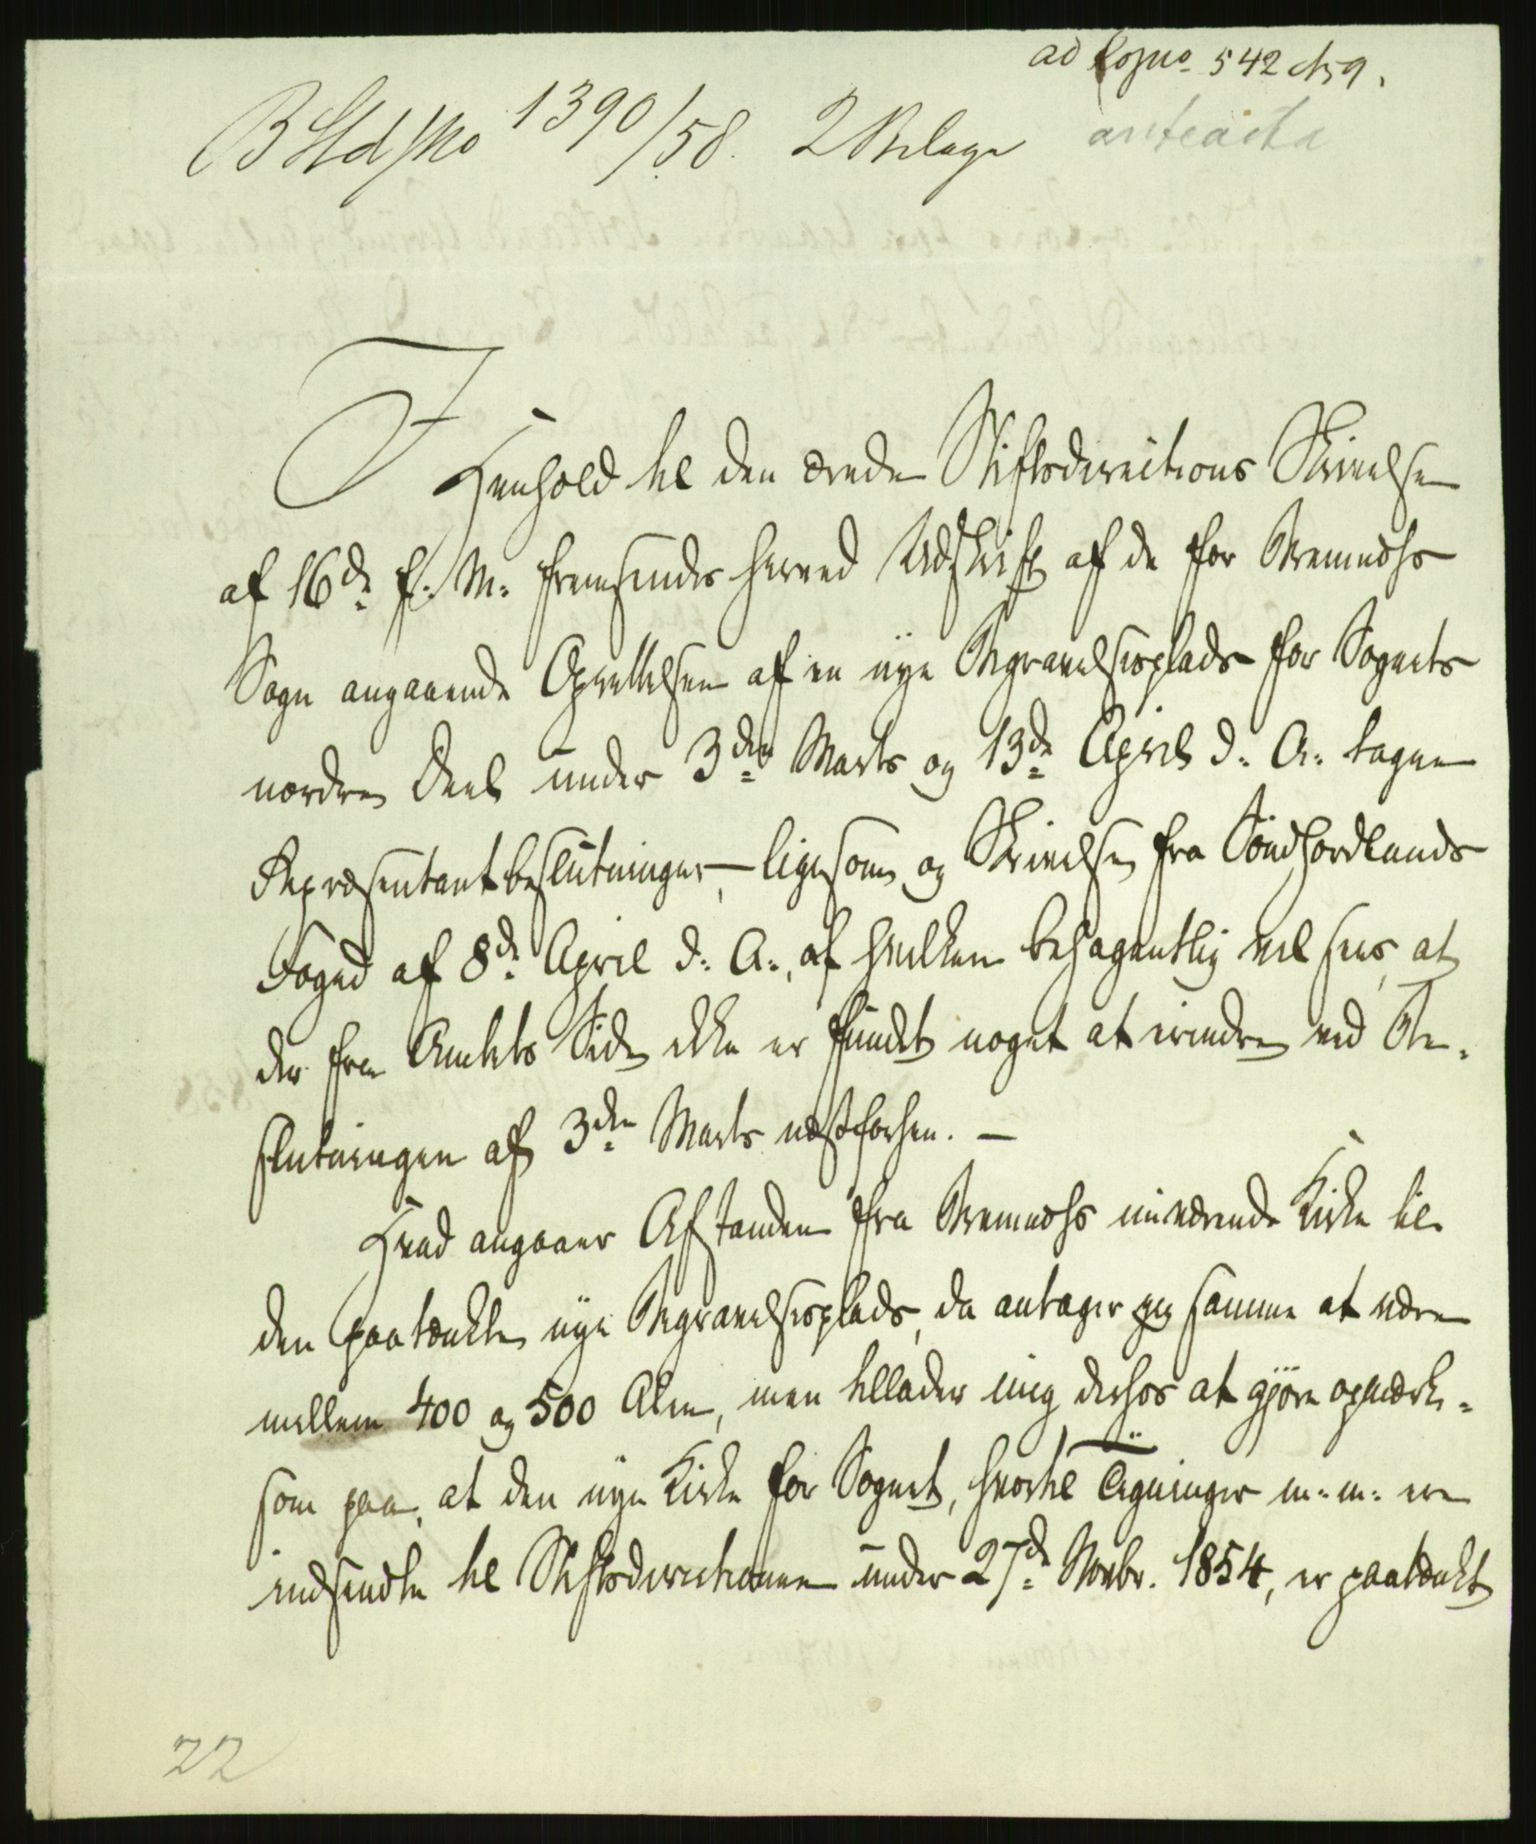 ad Copno 542 59.
B Std/No 1390/58. 2 Bilage anteacta
I Henhold til den ærede Stiftsdirections Skrivelse
af 16de f. M. fremsendes herved Udskrift af de for Bremnæs
Sogn angaaende Oprettelsen af en nye Begravelsesplads for Sognets
nordre Deel under 3die Marts og 13de April d. A. tagne
Repræsentantbeslutninger, – ligesom og Skrivelse fra Søndhordlands
Foged af 8de April d. A., af hvilken behageligt vil sees, at
der fra Amtets Side ikke er fundet noget at erindre ved Be-
slutningen af 3die Marts næstforhen. –
Hvad angaaer Afstanden fra Bremnæs nuværende Kirke til
den paatænkte nye Begravelsesplads, da antager jeg samme at være
mellem 400 og 500 Alen, men tillader mig derhos at gjøre opmærk-
som paa, at den nye Kirke for Sognet, hvortil Tegninger m. m. ere
indsendte til Stiftsdirectionen under 27de Novbr. 1854, er paatænkt
22